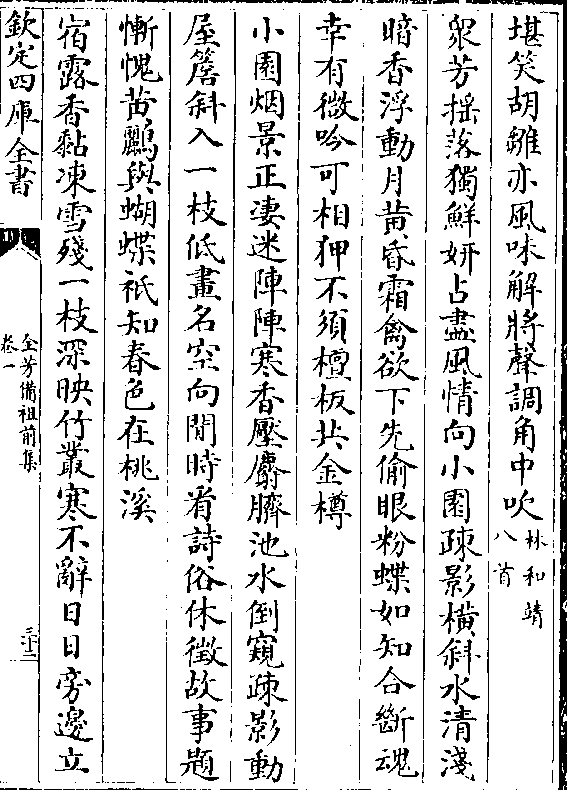 堪笑胡雛亦風味解將聲調角中吹林和靖八首
衆芳揺落獨鮮妍占盡風情向小園疎影横斜水清淺
暗香浮動月黄昏霜禽欲下先偷眼粉蝶如知合斷魂
幸有微吟可相狎不須檀板共金樽
小園烟景正淒迷陣陣寒香壓麝臍池水倒窺疎影動
屋簷斜入一枝低畫名空向閒時看詩俗休徵故事題
慚愧黄鸝與蝴蝶祇知春色在桃溪
宿露香黏凍雪殘一枝深映竹叢寒不辭日日旁邊立
欽定四庫全書
全芳備祖前集
卷一
三十三